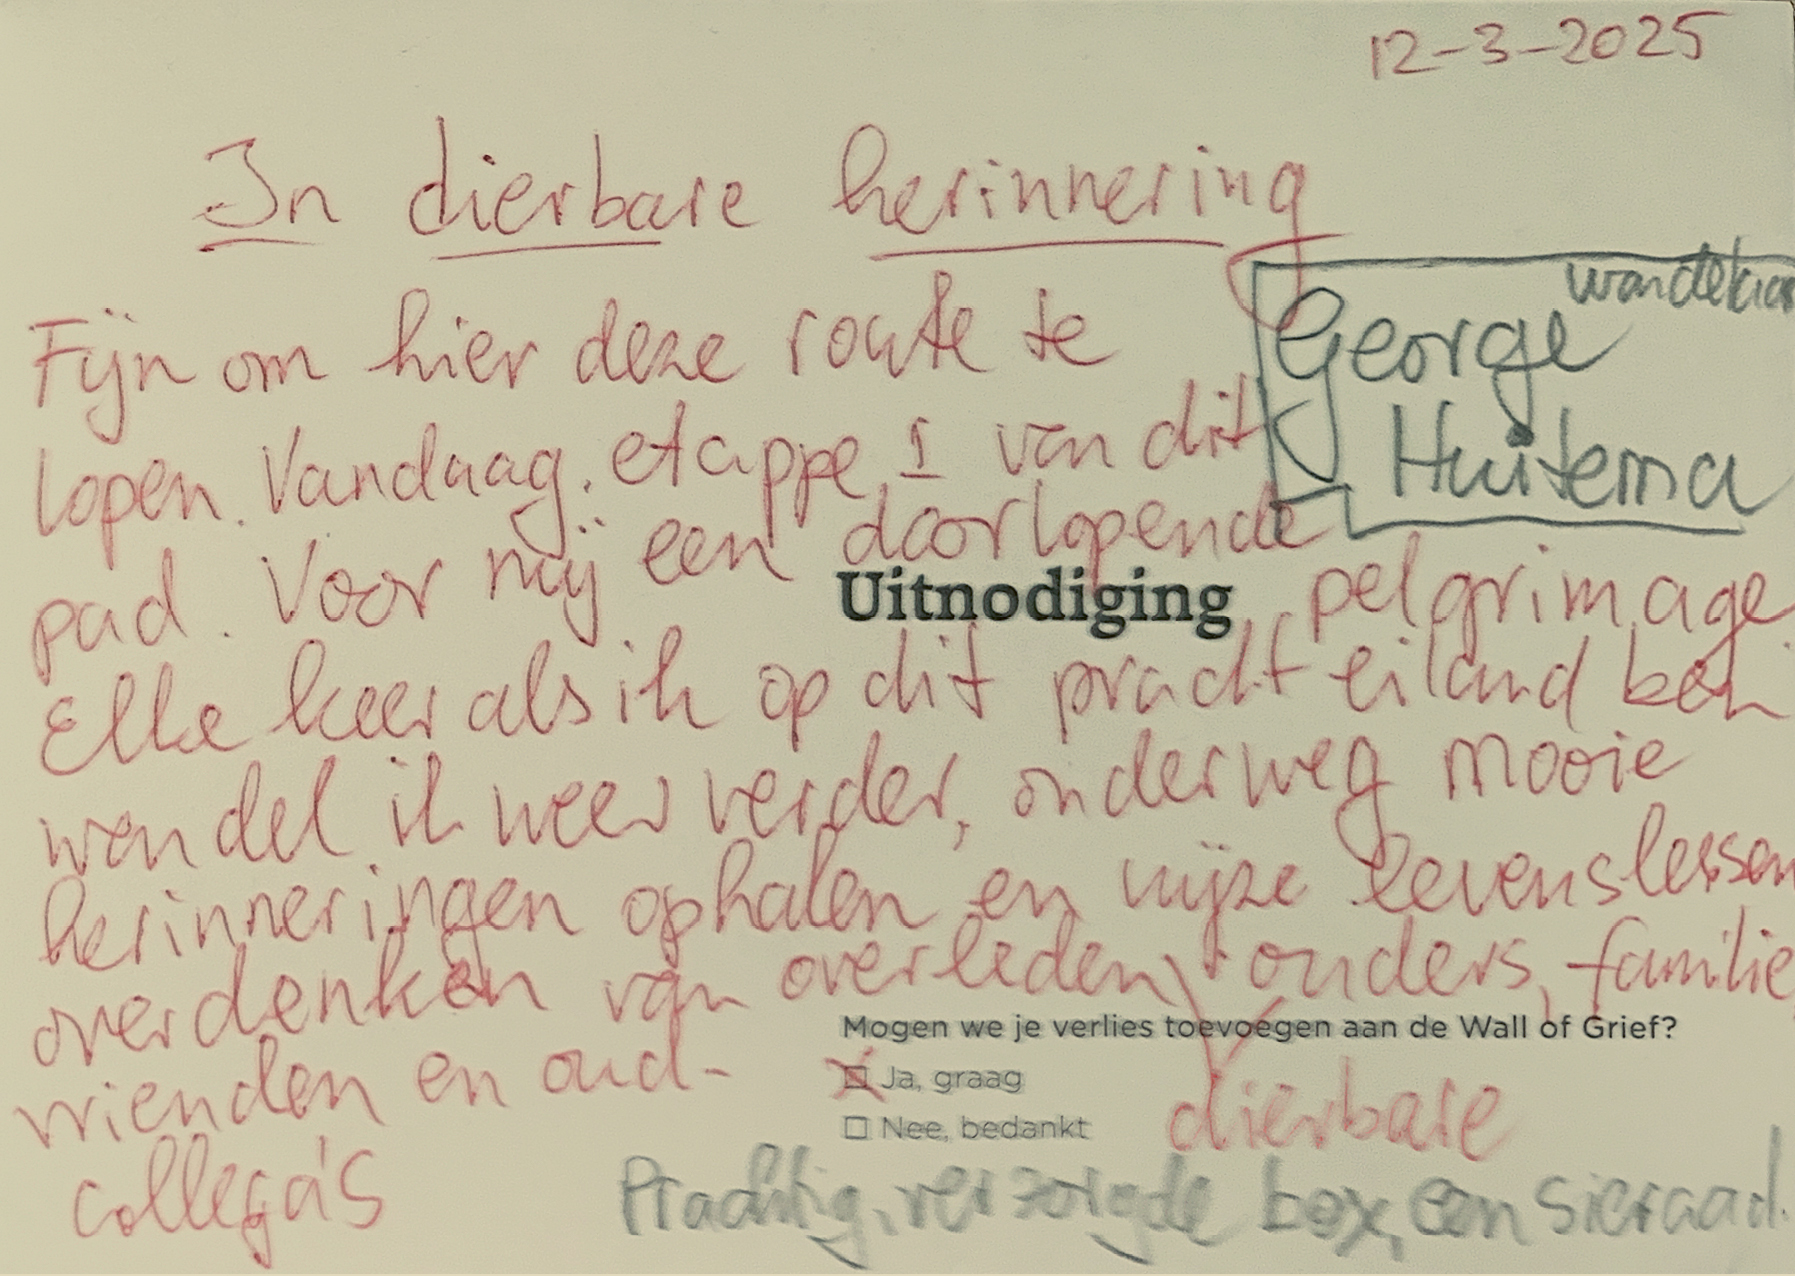 12-3-2025
In dierbare herinnering
Fijn om hier deze route te
lopen. Vandaag, etappe 1 van dit
pad. Voor mij een doorlopende pelgrimage
Elke keer als ik op dit pracht eiland ben
wandel ik weer verder, onderweg mooie
herinneringen ophalen en wijze levenslessen
overdenken van overleden ouders, familie
vrienden en oud-
collega's
dierbare
George
Huitema
Uitnodiging
Mogen we je verlies toevoegen aan de Wall of Grief?
Ja, graag
Nee, bedankt
Prachtig, verzorgde box, een sieraad.